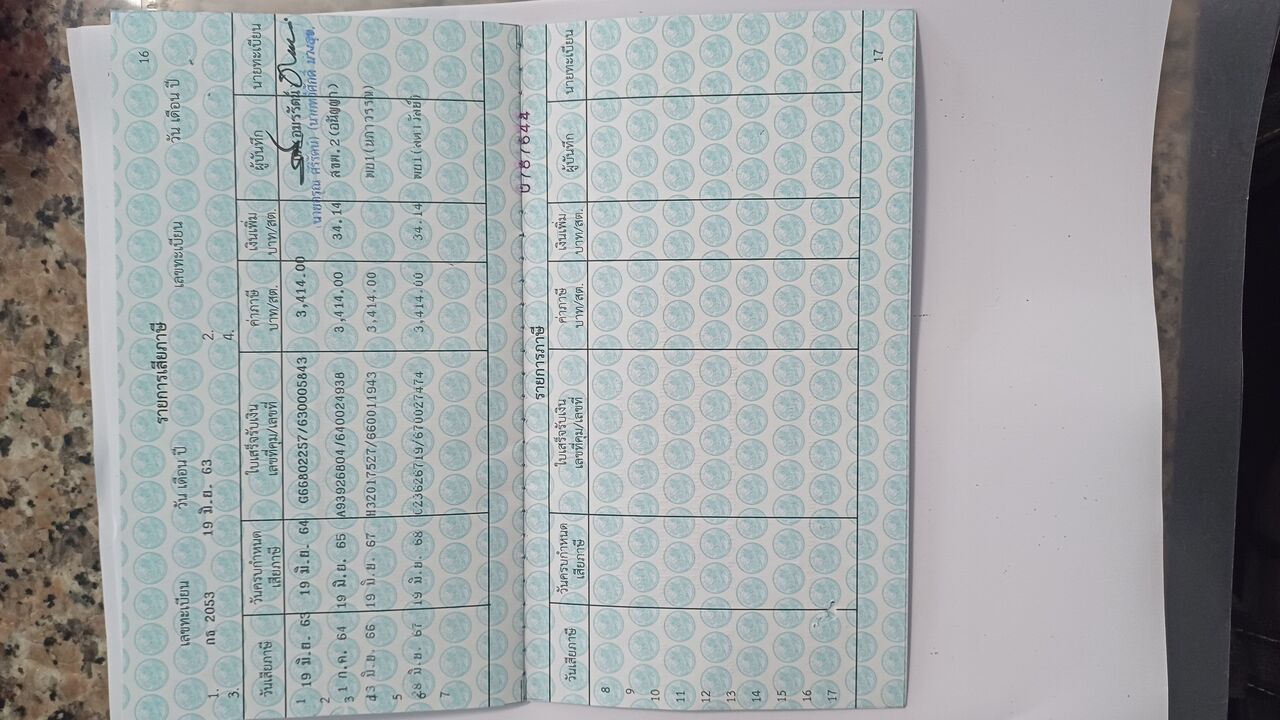 16
รายการเสียภาษี
เลขทะเบียน วัน เดือน ปี เลขทะเบียน วัน เดือน ปี
1. กธ 2053 19 มิ.ย. 63 2.
3. 4.
วันเสียภาษี วันครบกำหนดเสียภาษี ใบเสร็จรับเงิน เลขที่คุม/เลขที่ ค่าภาษี บาท/สต. เงินเพิ่ม บาท/สต. ผู้บันทึก นายทะเบียน
1 19 มิ.ย. 63 19 มิ.ย. 64 G66802257/630005843 3,414.00
2
3 1 ก.ค. 64 19 มิ.ย. 65 A93926804/640024938 3,414.00 34.14 สขพ.2(อนัญญา)
4 3 มิ.ย. 66 19 มิ.ย. 67 H32017527/660011943 3,414.00 พบ1(นภาวรรณ)
5
6 28 มิ.ย. 67 19 มิ.ย. 68 C23626719/670027474 3,414.00 34.14
7
0787644
รายการภาษี
วันเสียภาษี วันครบกำหนดเสียภาษี ใบเสร็จรับเงิน เลขที่คุม/เลขที่ ค่าภาษี บาท/สต. เงินเพิ่ม บาท/สต. ผู้บันทึก นายทะเบียน
8
9
10
11
12
13
14
15
16
17
17